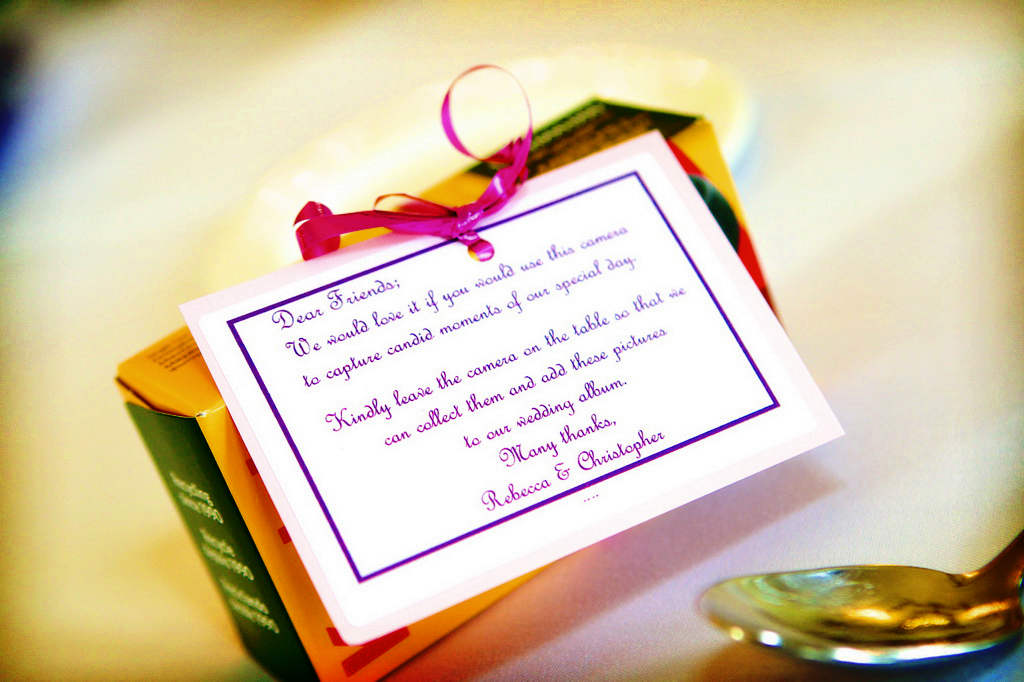 Dear Friends;
We would love it if you would use this camera
to capture candid moments of our special day.
Kindly leave the camera on the table so that we
can collect them and add these pictures
to our wedding album.
Many thanks,
Rebecca & Christopher
....